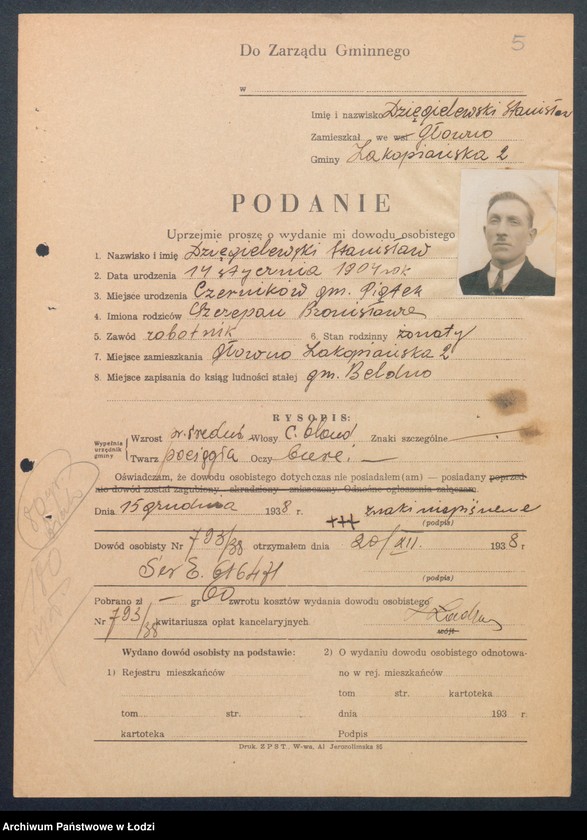 5
Do Zarządu Gminnego
w
Imię i nazwisko Dzięgielewski Stanisław
Zamieszkał we wsi Głowno
Gminy Zakopiańska 2
PODANIE
Uprzejmie proszę o wydanie mi dowodu osobistego
1. Nazwisko i imię Dzięgielewski Stanisław
2. Data urodzenia 14 stycznia 1904 rok
3. Miejsce urodzenia Czerników gm. Piątek
4. Imiona rodziców Szczepan Bronisława
5. Zawód robotnik 6. Stan rodzinny żonaty
7. Miejsce zamieszkania Głowno Zakopiańska 2
8. Miejsce zapisania do ksiąg ludności stałej gm. Beldno
RYSOPIS:
Wypełnia urzędnik gminy
Wzrost w. średni Włosy c. blond Znaki szczególne —
Twarz pociągła Oczy —
Oświadczam, że dowodu osobistego dotychczas nie posiadałem(am) — posiadany poprzed-
nio dowód został zagubiony - skradziony - zniszczony. Odnośne ogłoszenia załączam.
Dnia 15 grudnia 1938 r. +++ znaki niepiśmene
(podpis)
Dowód osobisty Nr 793/38 otrzymałem dnia 20/XII. 1938 r
Ser E. 616471
(podpis)
Pobrano zł — gr 60 zwrotu kosztów wydania dowodu osobistego
Nr 793/38 kwitariusza opłat kancelaryjnych
wójt
Wydano dowód osobisty na podstawie:
1) Rejestru mieszkańców
tom str.
kartoteka
2) O wydaniu dowodu osobistego odnotowa-
no w rej. mieszkańców
tom str. kartoteka
dnia 193 r.
Podpis
Druk. ZPST., W-wa, Al Jerozolimska 85
Archiwum Państwowe w Łodzi